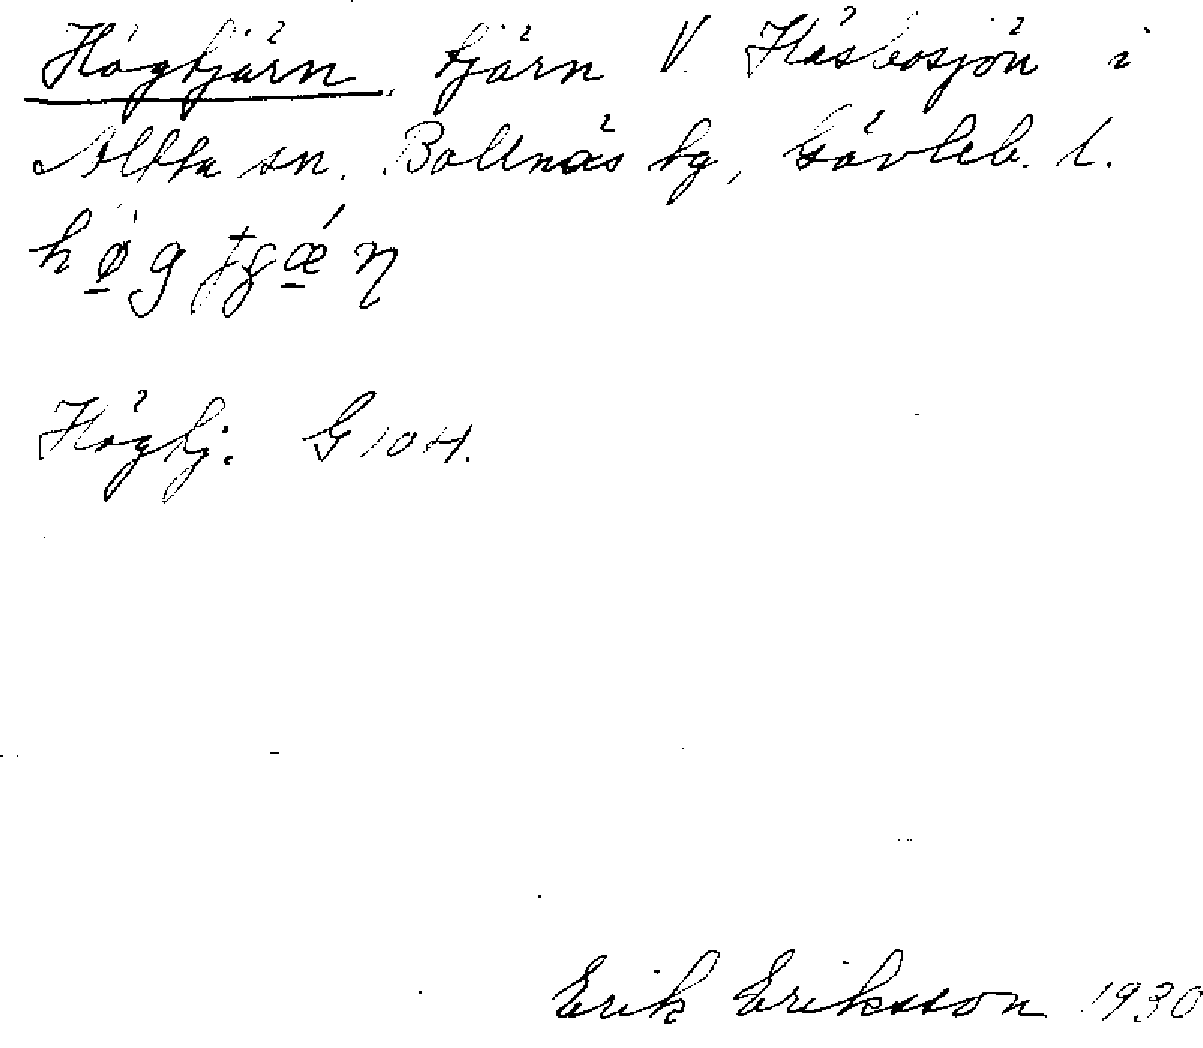 Högtjärn, tjärn V. Häsbosjön i
Alfta sn. Bollnäs tg, Gävleb. l.
Högtj. G 104.
Erik Eriksson 1930